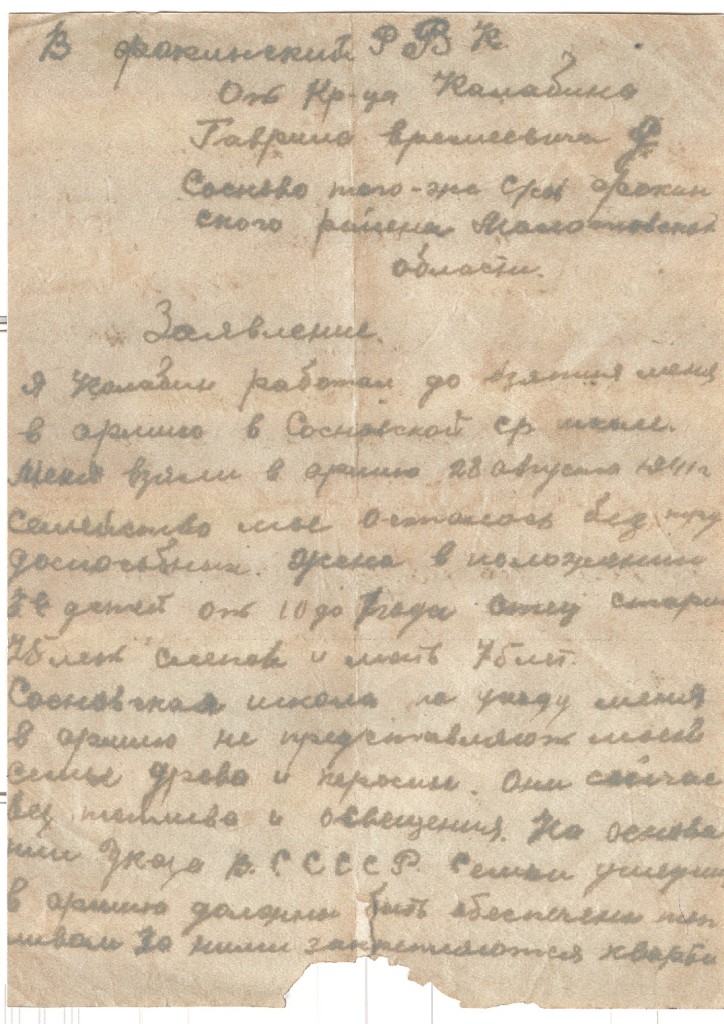 В фокинский РВК.
От Кр-ца Калабина
Гаврила
Сосново того-же Ср Фокин
ского района Молотовской
области.
Заявление.
Я Калабин работал до взятия меня
в армию в Сосновской ср школе.
Меня взяли в армию 28 августа 1941 г
семейство мое осталось без тру
доспособных. Жена в положении
детей от 10 до 1 года отец стари
75 лет слепой и мать 75 лет.
Сосновская школа по уходу меня
в армию не представляют моей
семье дрова и керосин. Они сейчас
без топлива и освещения. На основа
нии Указа В.С СССР. Семьи ушедши
в армию должны быть обеспечены топ
ливом за ними закрепляются кварти